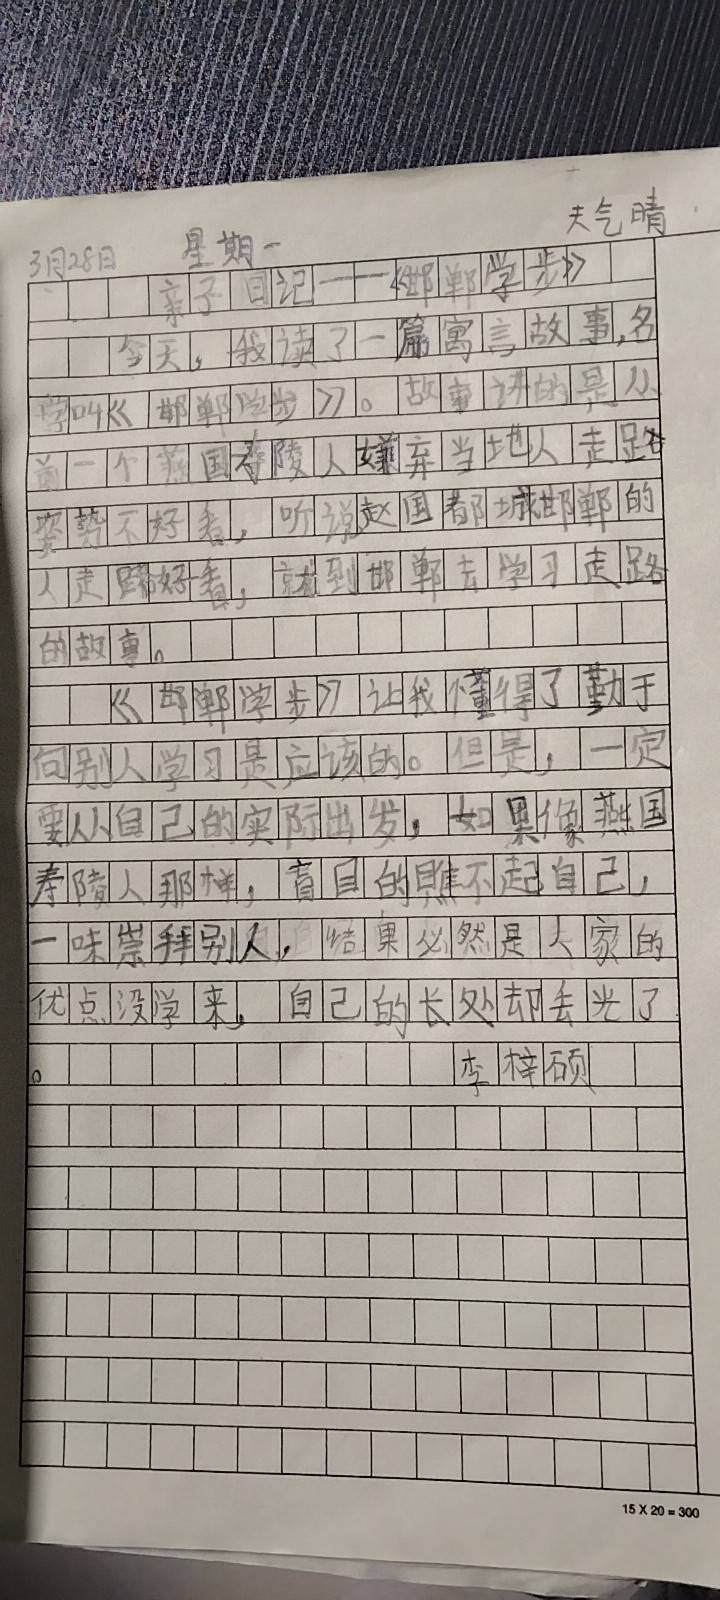 3月28日 星期一 天气晴
亲子日记——《邯郸学步》
今天，我读了一篇寓言故事，名
字叫《邯郸学步》。故事讲的是从
前一个燕国寿陵人嫌弃当地人走路
姿势不好看，听说赵国都城邯郸的
人走路好看，就到邯郸去学习走路
的故事。
《邯郸学步》让我懂得了勤于
向别人学习是应该的。但是，一定
要从自己的实际出发，如果像燕国
寿陵人那样，盲目的瞧不起自己，
一味崇拜别人，结果必然是人家的
优点没学来，自己的长处却丢光了
。 李梓硕
15×20=300